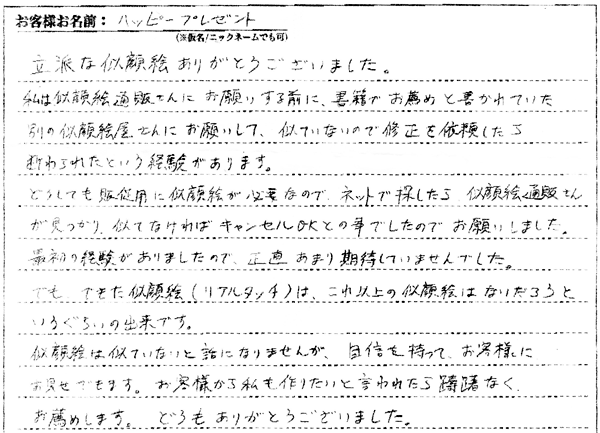 お客様お名前： ハッピープレゼント
（※仮名/ニックネームでも可）
立派な似顔絵ありがとうございました。
私は似顔絵通販さんにお願いする前に、書籍でお薦めと書かれていた
別の似顔絵屋さんにお願いして、似ていないので修正を依頼したら
断わられたという経験があります。
どうしても販促用に似顔絵が必要なので、ネットで探したら似顔絵通販さん
が見つかり、似てなければキャンセルOKとの事でしたのでお願いしました。
最初の経験がありましたので、正直あまり期待していませんでした。
でも、できた似顔絵（リアルタッチ）は、これ以上の似顔絵はないだろうと
いうぐらいの出来です。
似顔絵は似ていないと話になりませんが、自信を持って、お客様に
お見せできます。お客様から私も作りたいと言われたら躊躇なく、
お薦めします。 どうもありがとうございました。